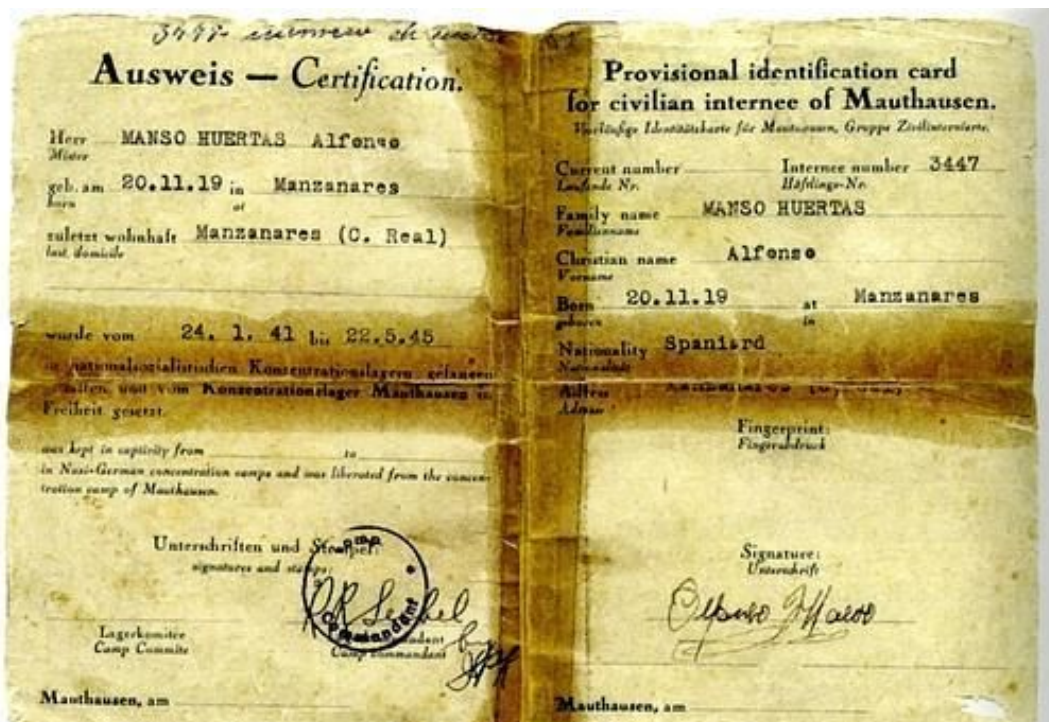 3447
Ausweis — Certification.
Herr MANSO HUERTAS Alfonso
Mister
geb. am 20.11.19 in Manzanares
born at
zuletzt wohnhaft Manzanares (C. Real)
last domicile
wurde vom 24. 1. 41 bis 22.5.45
in nationalsozialistischen Konzentrationslagern gefangen
und vom Konzentrationslager Mauthausen in
Freiheit gesetzt.
was kept in captivity from to
in Nazi-German concentration camps and was liberated from the concen-
tration camp of Mauthausen.
Unterschriften und Stempel:
signatures and stamps:
Camp
Commandant
Lagerkomitee
Camp Commite
Camp commandant
Mauthausen, am
Provisional identification card
for civilian internee of Mauthausen.
Vorläufige Identitätskarte für Mauthausen, Gruppe Zivilinternierte.
Current number Internee number 3447
Laufende Nr. Häftlings-Nr.
Family name MANSO HUERTAS
Familienname
Christian name Alfonso
Vorname
Born 20.11.19 at Manzanares
geboren in
Nationality Spaniard
Nationalität
Adress
Adresse
Fingerprint:
Fingerabdruck
Signature:
Unterschrift
Alfonso Manso
Mauthausen, am